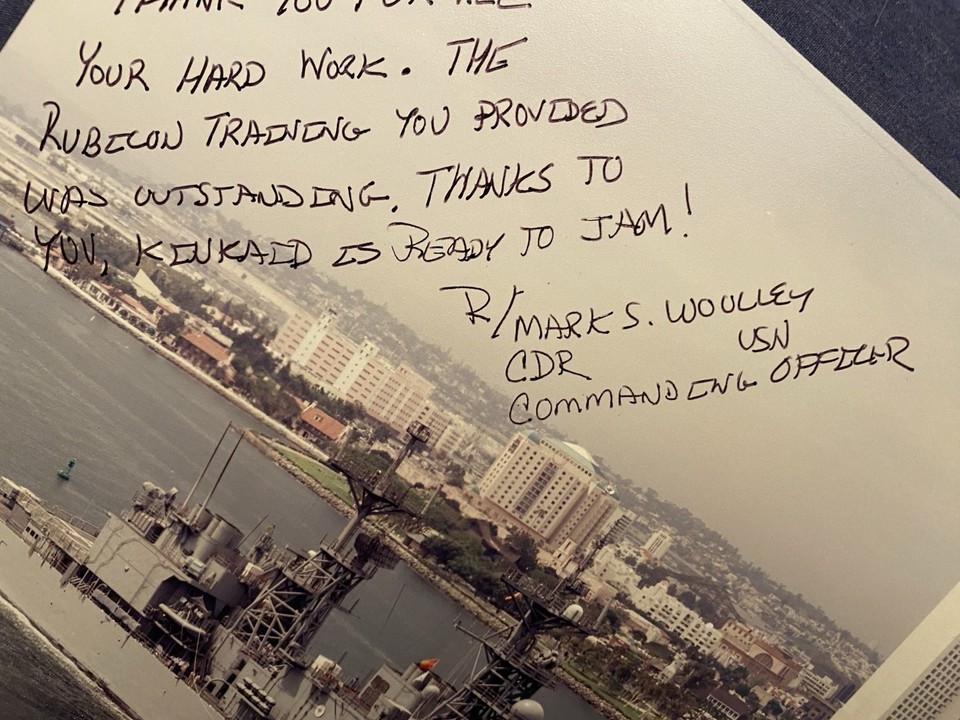 THANK YOU FOR ALL
YOUR HARD WORK. THE
RUBICON TRAINING YOU PROVIDED
WAS OUTSTANDING. THANKS TO
YOU, KINKAID IS READY TO JAM!
R/MARK S. WOOLLEY
CDR USN
COMMANDING OFFICER